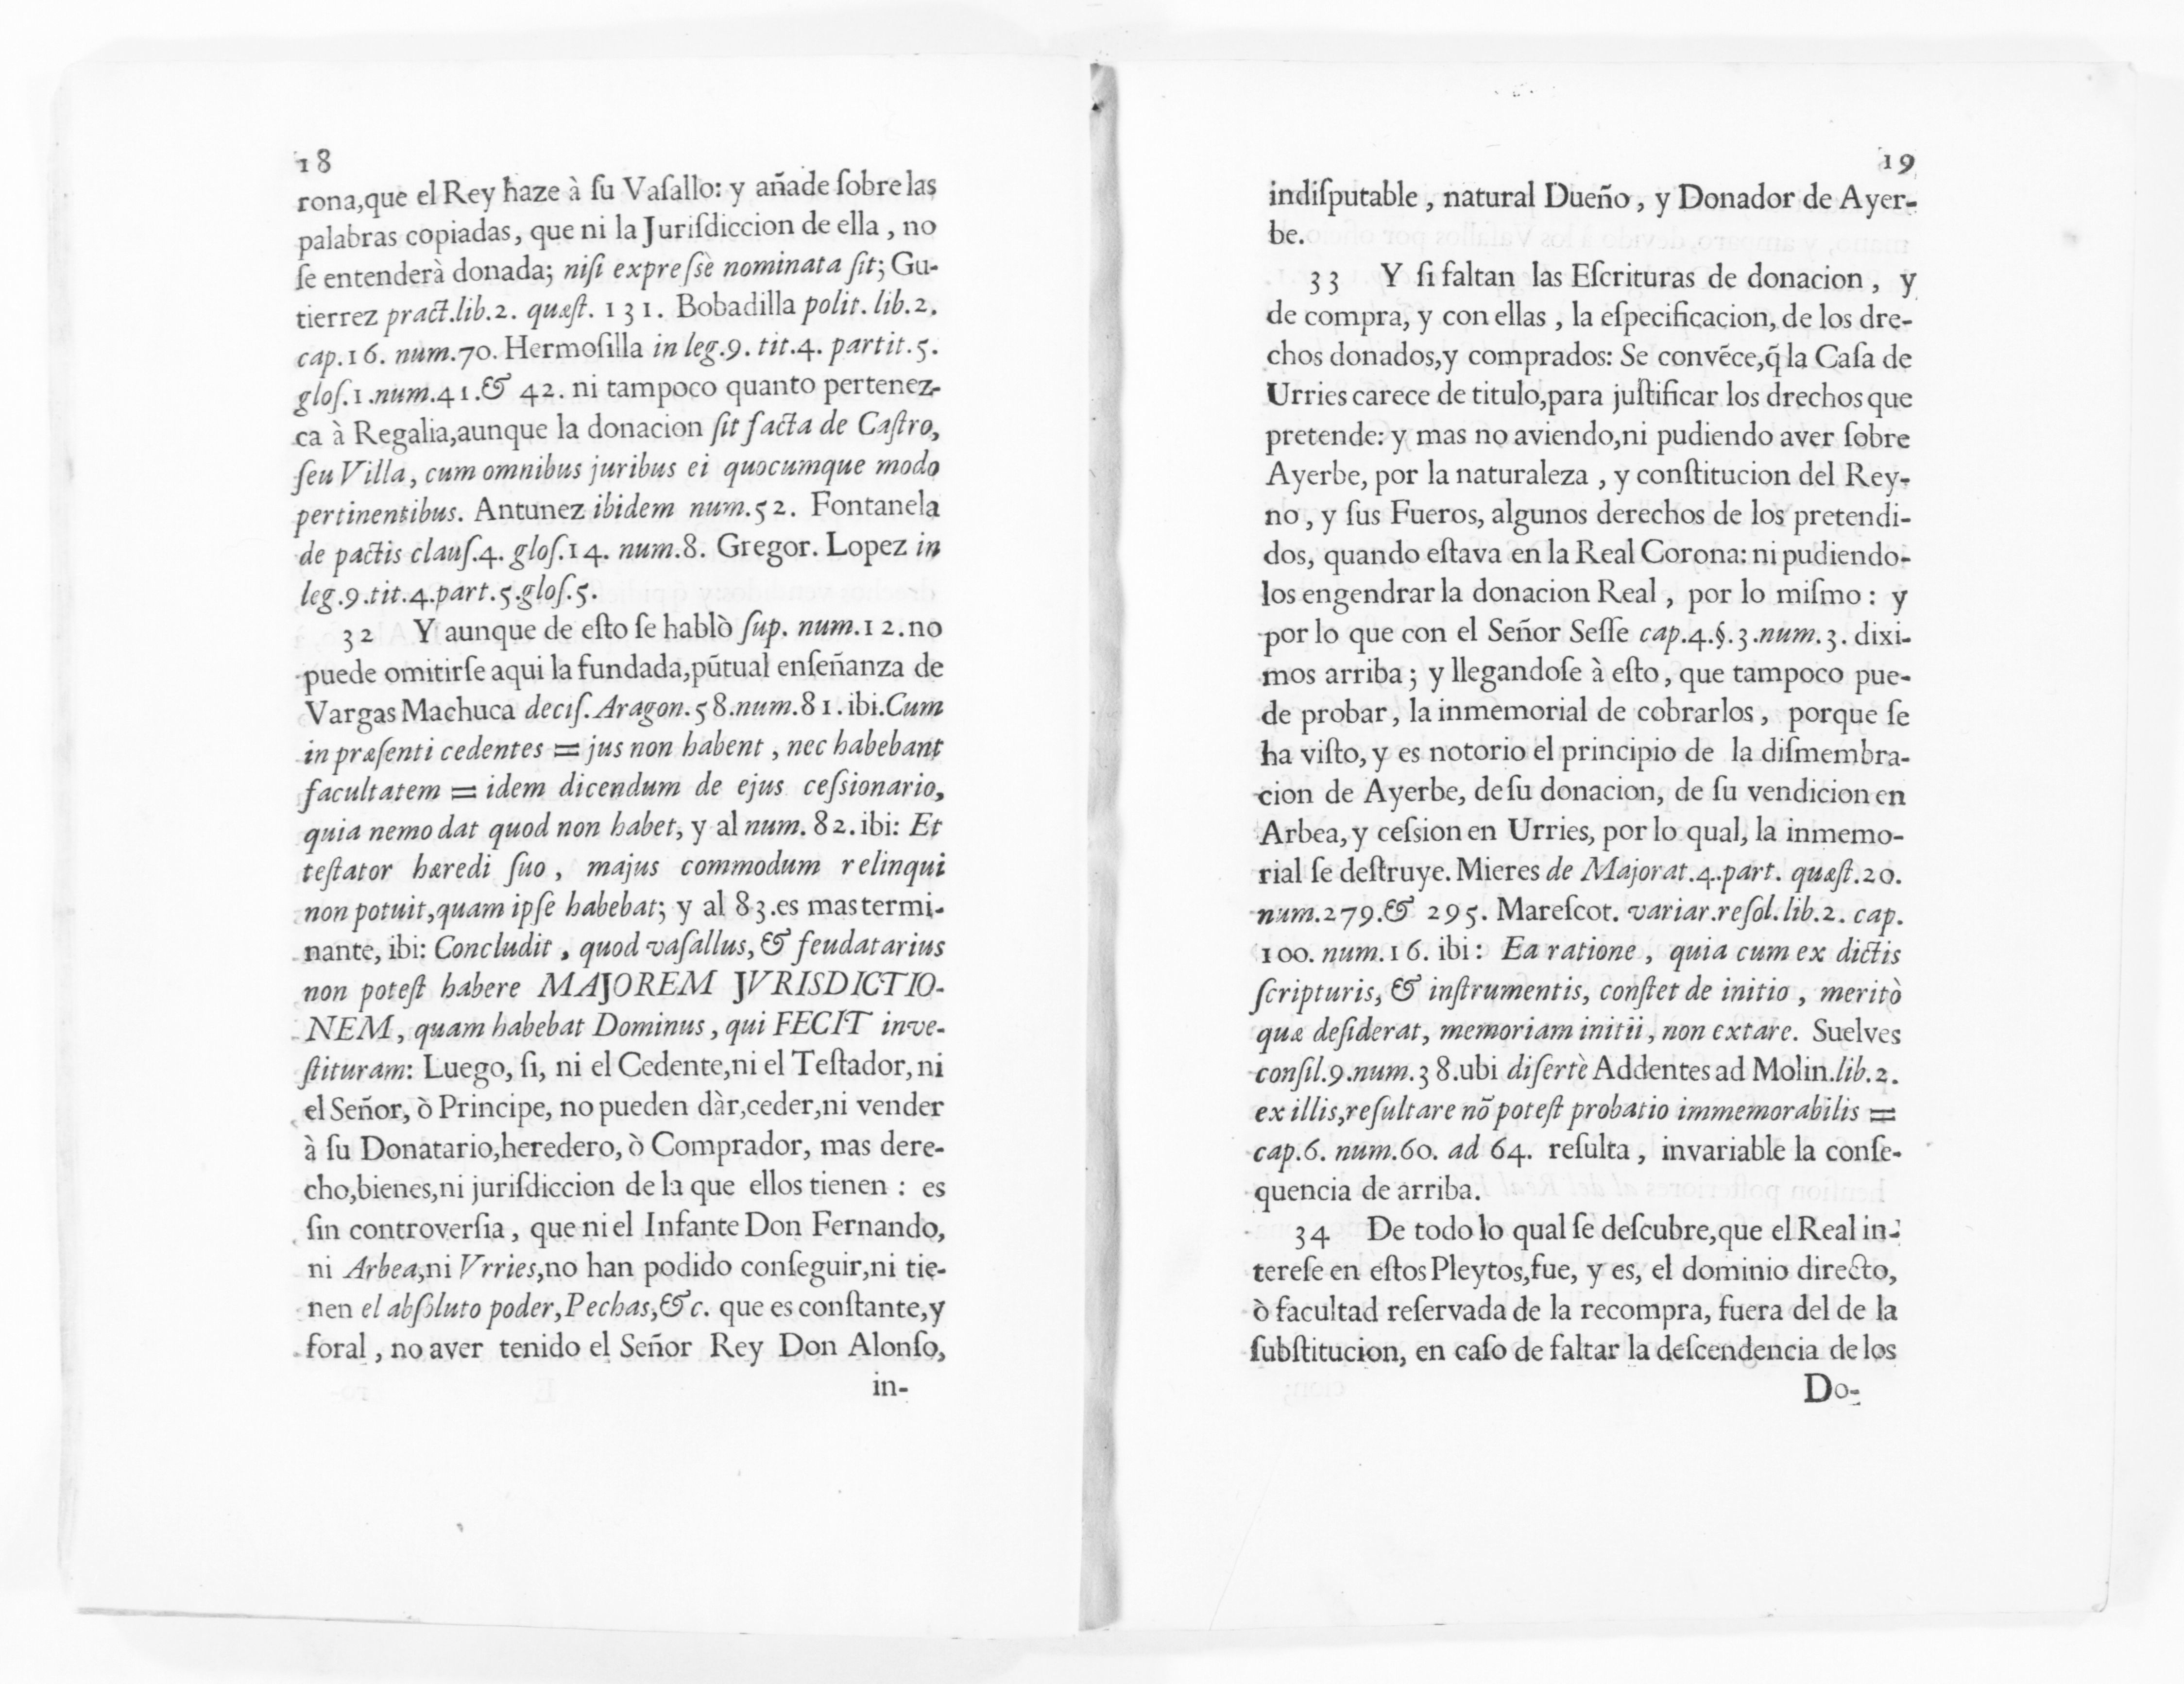 18
rona,que el Rey haze à ſu Vaſallo: y añade ſobre las
palabras copiadas, que ni la Juriſdiccion de ella, no
ſe entenderà donada; niſi expreſsè nominata ſit; Gu-
tierrez pract.lib.2. quæſt. 131. Bobadilla polit. lib.2.
cap.16. num.70. Hermoſilla in leg.9. tit.4. partit.5.
gloſ.1.num.41.& 42. ni tampoco quanto pertenez-
ca à Regalia,aunque la donacion ſit facta de Caſtro,
ſeu Villa, cum omnibus juribus ei quocumque modo
pertinentibus. Antunez ibidem num.52. Fontanela
de pactis clauſ.4. gloſ.14. num.8. Gregor. Lopez in
leg.9.tit.4.part.5.gloſ.5.
32 Y aunque de eſto ſe hablò ſup. num.12.no
puede omitirſe aqui la fundada,pũtual enſeñanza de
Vargas Machuca deciſ.Aragon.58.num.81.ibi.Cum
in præſenti cedentes = jus non habent, nec habebant
facultatem = idem dicendum de ejus ceſsionario,
quia nemo dat quod non habet, y al num. 82. ibi: Et
teſtator hæredi ſuo, majus commodum relinqui
non potuit,quam ipſe habebat; y al 83.es mas termi-
nante, ibi: Concludit, quod vaſallus, & feudatarius
non poteſt habere MAJOREM JVRISDICTIO-
NEM, quam habebat Dominus, qui FECIT inve-
ſtituram: Luego, ſi, ni el Cedente,ni el Teſtador, ni
el Señor, ò Principe, no pueden dàr,ceder,ni vender
à ſu Donatario,heredero, ò Comprador, mas dere-
cho,bienes,ni juriſdiccion de la que ellos tienen : es
ſin controverſia, que ni el Infante Don Fernando,
ni Arbea,ni Vrries,no han podido conſeguir,ni tie-
nen el abſoluto poder,Pechas,&c. que es conſtante,y
foral, no aver tenido el Señor Rey Don Alonſo,
in-
19
indiſputable, natural Dueño, y Donador de Ayer-
be.
33 Y ſi faltan las Eſcrituras de donacion, y
de compra, y con ellas, la eſpecificacion, de los dre-
chos donados,y comprados: Se convẽce,q̃ la Caſa de
Urries carece de titulo,para juſtificar los drechos que
pretende: y mas no aviendo,ni pudiendo aver ſobre
Ayerbe, por la naturaleza, y conſtitucion del Rey-
no, y ſus Fueros, algunos derechos de los pretendi-
dos, quando eſtava en la Real Corona: ni pudiendo-
los engendrar la donacion Real, por lo miſmo : y
por lo que con el Señor Seſſe cap.4.§.3.num.3. dixi-
mos arriba; y llegandoſe à eſto, que tampoco pue-
de probar, la inmemorial de cobrarlos, porque ſe
ha viſto, y es notorio el principio de la diſmembra-
cion de Ayerbe, de ſu donacion, de ſu vendicion en
Arbea, y ceſsion en Urries, por lo qual, la inmemo-
rial ſe deſtruye. Mieres de Majorat.4.part. quæſt.20.
num.279.& 295. Mareſcot. variar.reſol.lib.2. cap.
100. num.16. ibi: Ea ratione, quia cum ex dictis
ſcripturis, & inſtrumentis, conſtet de initio, meritò
quæ deſiderat, memoriam initii, non extare. Suelves
conſil.9.num.38.ubi diſertè Addentes ad Molin.lib.2.
ex illis,reſultare nõ poteſt probatio immemorabilis =
cap.6. num.60. ad 64. reſulta, invariable la conſe-
quencia de arriba.
34 De todo lo qual ſe deſcubre,que el Real in-
tereſe en eſtos Pleytos,fue, y es, el dominio directo,
ò facultad reſervada de la recompra, fuera del de la
ſubſtitucion, en caſo de faltar la deſcendencia de los
Do-